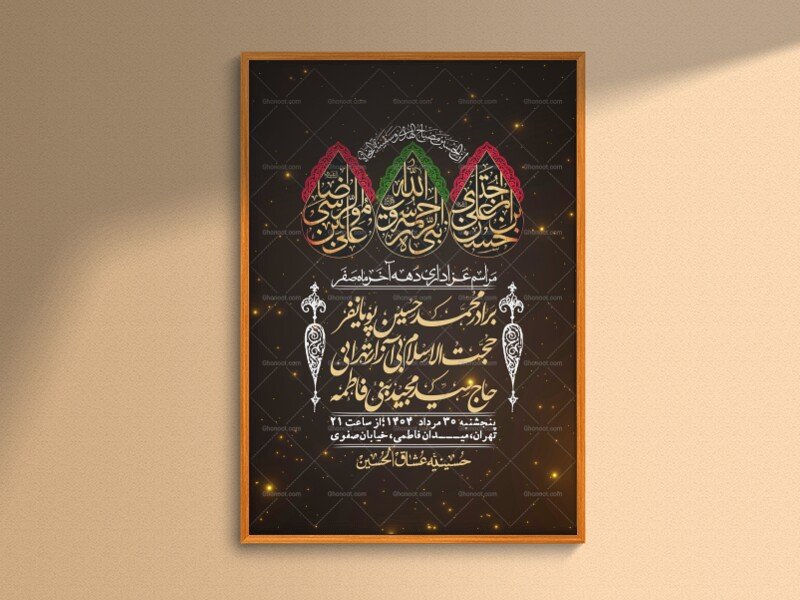 ان الحسین مصباح الهدی و سفینة النجاة
مراسم عزاداری دهه آخر ماه صفر
برادر محمدحسین پویانفر
حجت الاسلام بی آزار تهرانی
حاج سید مجید بنی فاطمه
پنجشنبه ۳۰ مرداد ۱۴۰۴؛از ساعت ۲۱
تهران،میـدان فاطمی،خیابان صفوی
حسینیه عشاق الحسین
Ghonoot.com